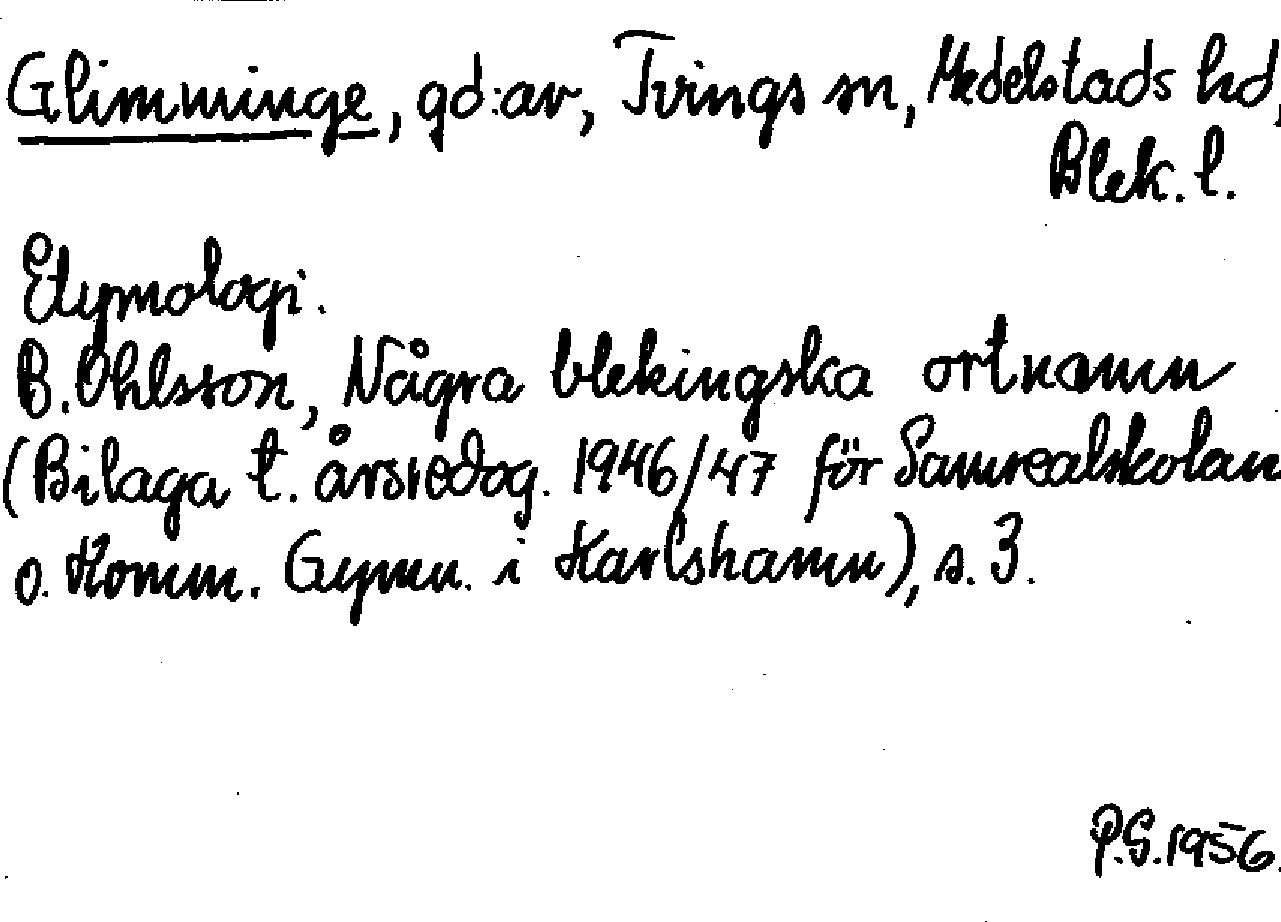 Glimminge, gd:ar, Tvings sn, Medelstads hd,
Blek. l.
Etymologi.
B. Ohlsson, Några blekingska ortnamn
(Bilaga t. årsredog. 1946/47 för Samrealskolan
o. Komm. Gymn. i Karlshamn), s. 3.
P.G. 1956.